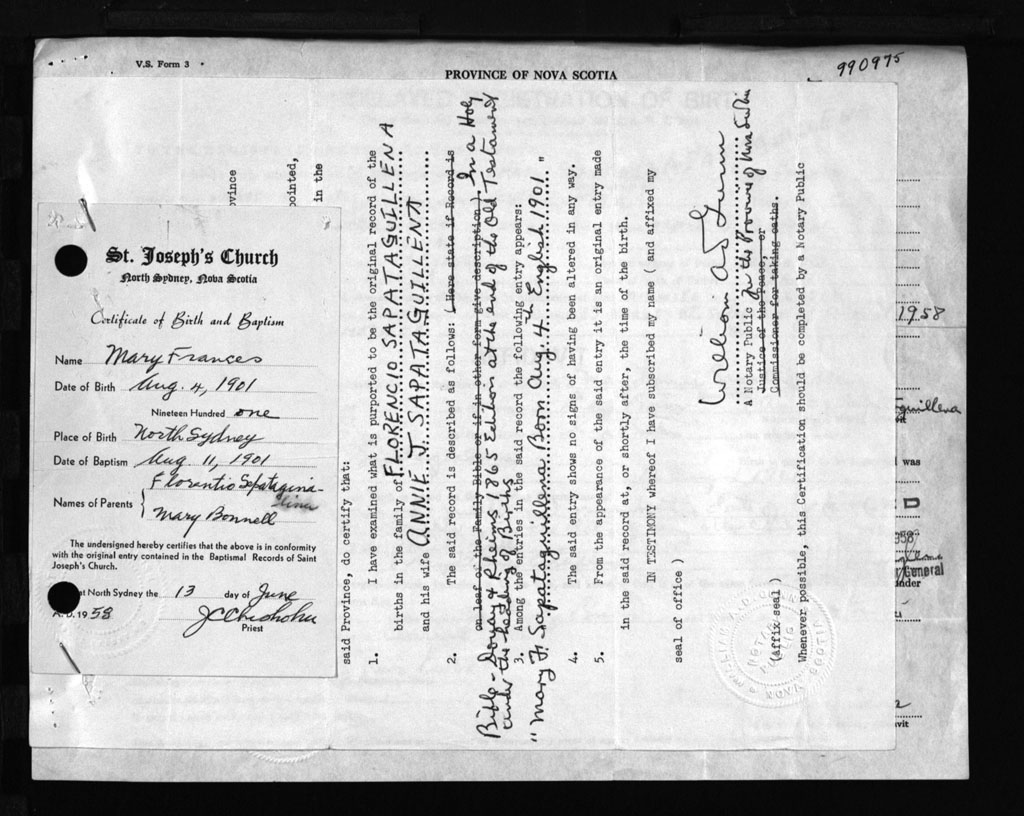 V.S. Form 3
PROVINCE OF NOVA SCOTIA
990975
St. Joseph's Church
North Sydney, Nova Scotia
Certificate of Birth and Baptism
Name Mary Frances
Date of Birth Aug 4, 1901
Nineteen Hundred one
Place of Birth North Sydney
Date of Baptism Aug 11, 1901
Names of Parents { Florentio Sepatagina-
llina
Mary Bonnell
The undersigned hereby certifies that the above is in conformity
with the original entry contained in the Baptismal Records of Saint
Joseph's Church.
at North Sydney the 13 day of June
A.D. 1958
Priest
vince
pointed,
in the
said Province, do certify that:
1. I have examined what is purported to be the original record of the
births in the family of FLORENCIO SAPATAGUILLENA
and his wife ANNIE J SAPATAGUILLENA
2. The said record is described as follows: (Here state if Record is
on leaf of the Family Bible or if in other form give description) In a Holy
Bible - Douay & Rheims 1865 Edition at the end of the Old Testament
under the heading of Births
3. Among the entries in the said record the following entry appears:
"Mary F. Sapataguillena Born Aug. 4th English 1901."
4. The said entry shows no signs of having been altered in any way.
5. From the appearance of the said entry it is an original entry made
in the said record at, or shortly after, the time of the birth.
IN TESTIMONY whereof I have subscribed my name ( and affixed my
seal of office )
William A D Gunn
A Notary Public in the Province of Nova Scotia
Justice of the Peace, or
Commissioner for taking oaths.
(affix seal )
NOTARY PUBLIC
NOVA SCOTIA
Whenever possible, this Certification should be completed by a Notary Public
1958
guillena
it
was
D
958
General
nder
vit